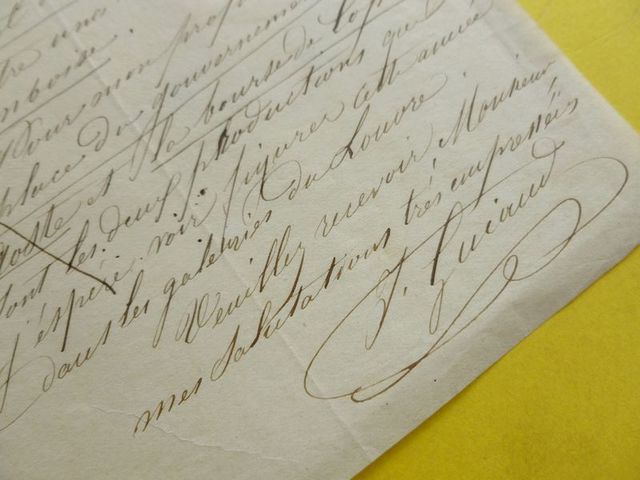 tre una
mboise.
Pour mon prop
place du gouvernemen
poste et le bourse de la p
sont les deux productions que
j'espère voir figurer cette année
dans les galeries du Louvre.
Veuillez recevoir, Monsieur
mes salutations très empressées
J. Guiaud